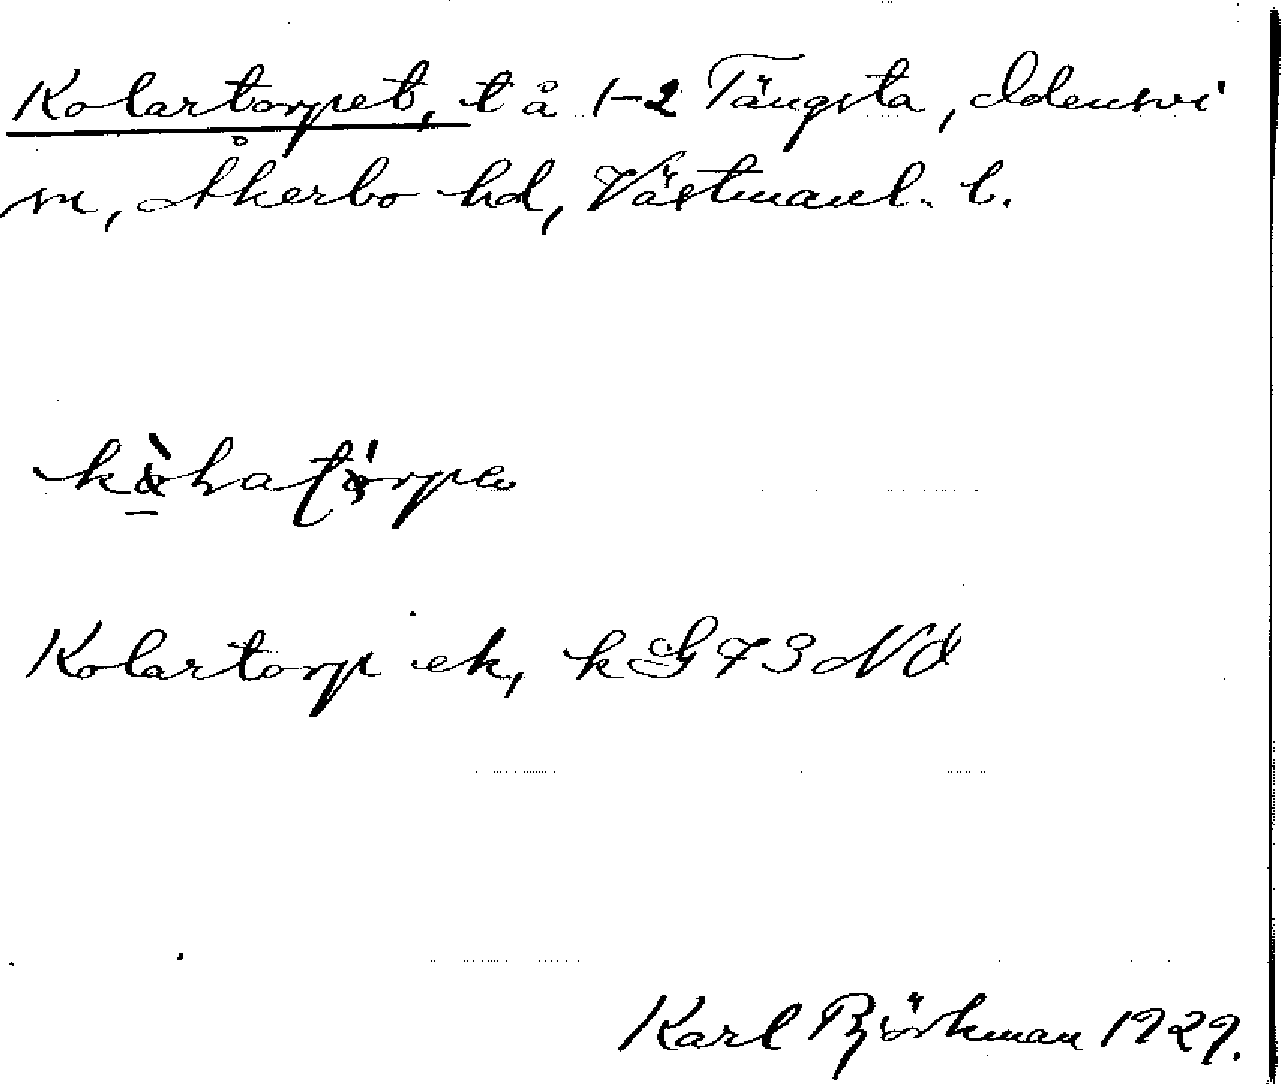 Kolartorpet, t å 1-2 Tängsta, Odensvi
sn, Åkerbo hd, Västmanl. l.
Kolartorp ek, k G 73 NÖ
Karl Björkman 1929.